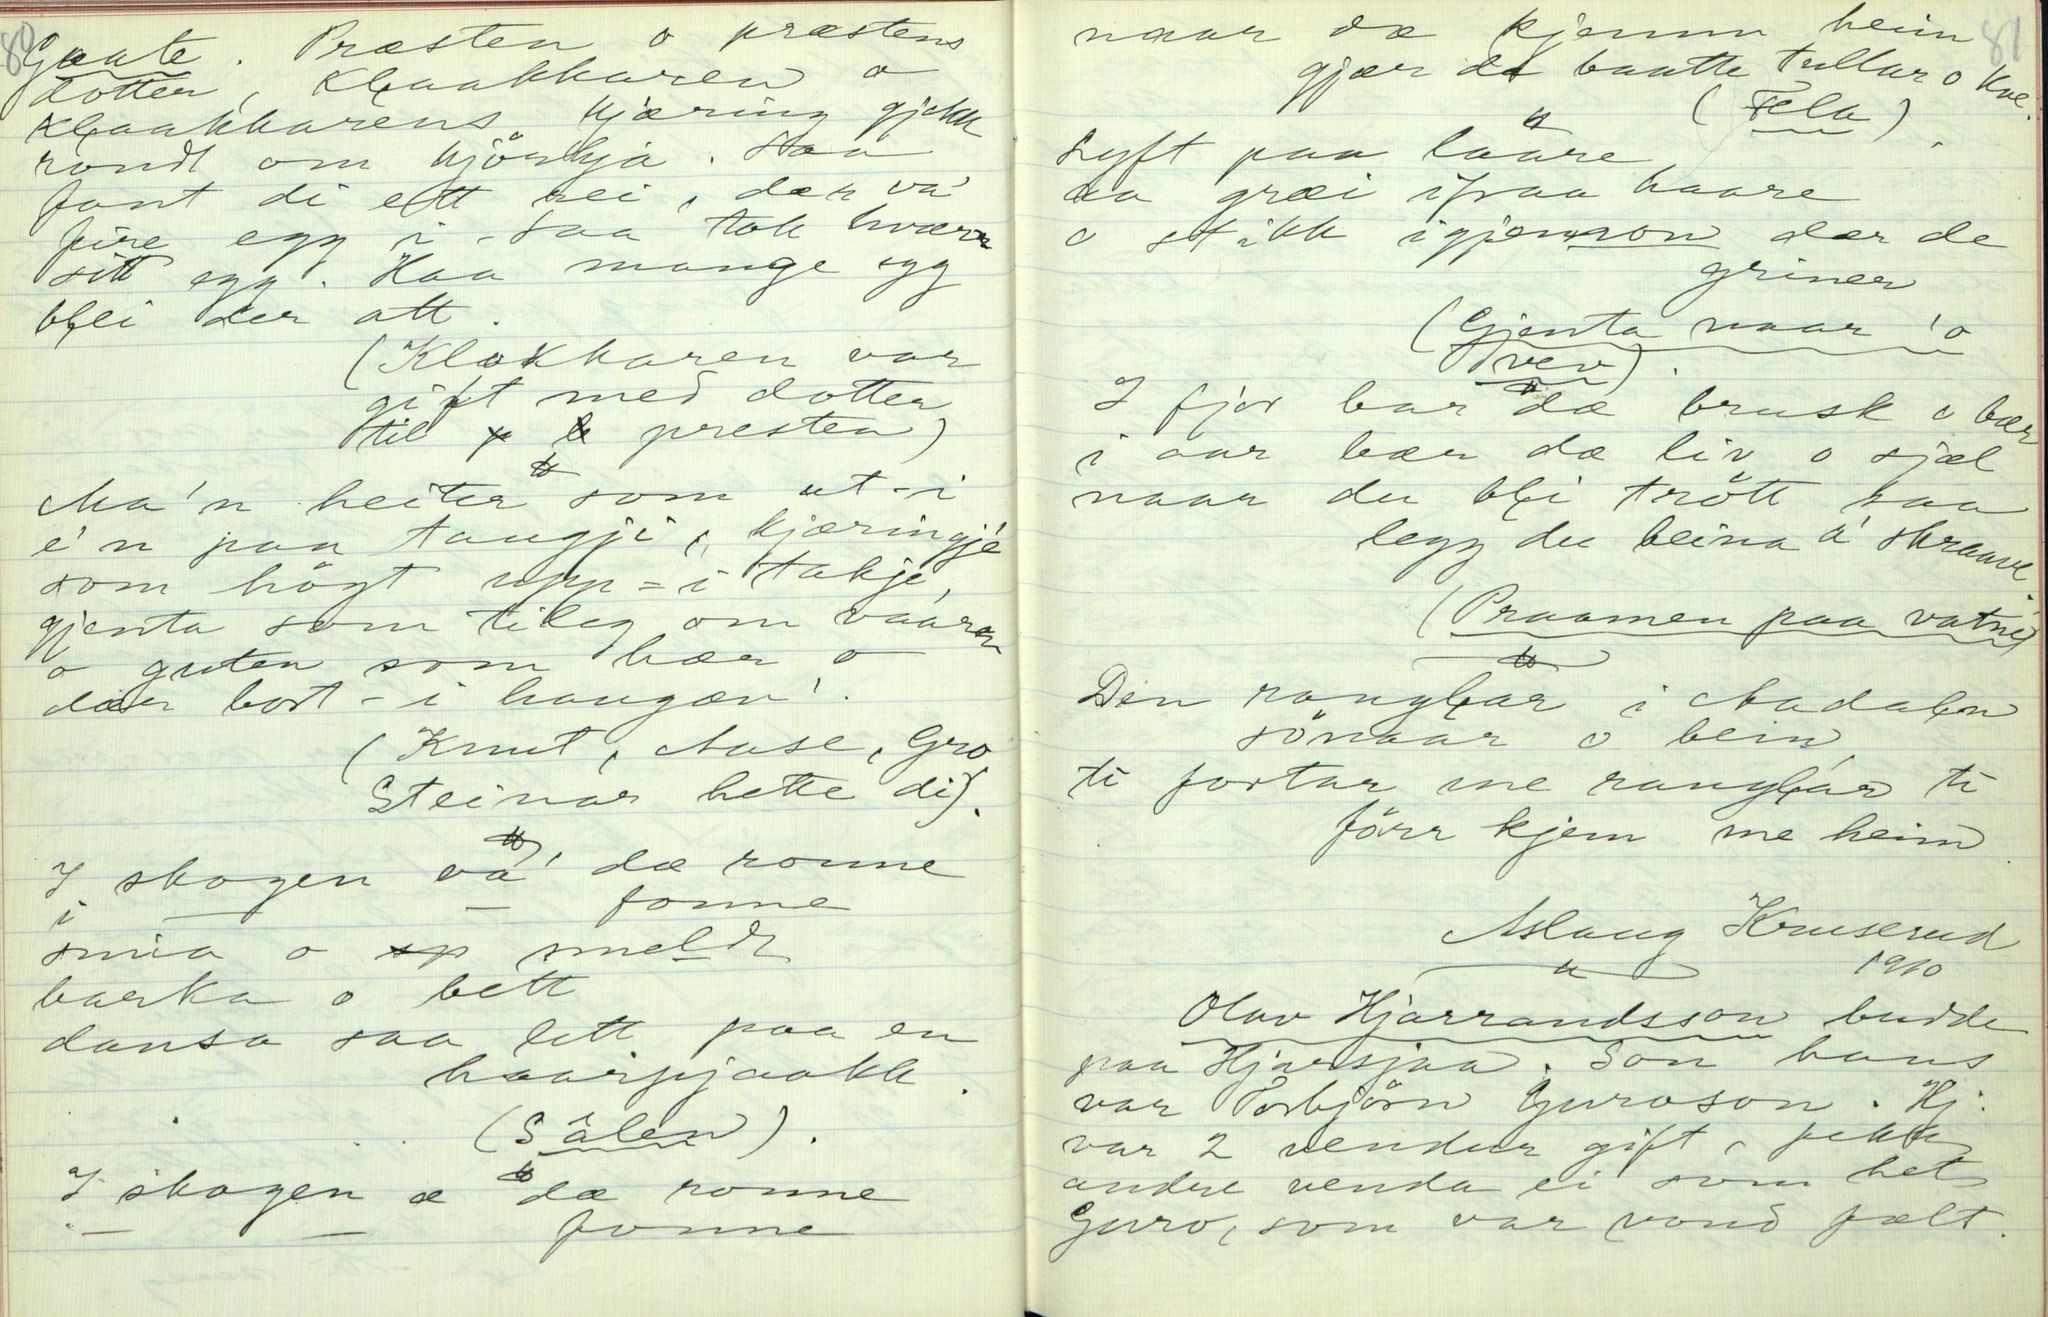 80
Gaate. Præsten o præstens
dotter, Klaakkaren o
Klaakkarens kjæring gjekk
rondt om kjörkja. Saa
fant di ett rei, der va'
fire egg i - saa tok kvær
sitt egg. Kaa mange egg
blei der att.
(Klokkaren var
gift med dotter
til presten)
Ma'n heiter som ut-i
é'n paa taugji, kjæringjé
som högt upp-i takje,
gjenta som tileg om vaáren
o guten som hær o
dær bort-i haugæn'.
(Knut, Aase, Gro,
Steinar hette di).
I skogen va' dæ ronne
i — — fonne
smia o smeldt
barka o bett
dansa saa lett paa en
haarpjaakk.
(Sålen).
I skogen æ dæ ronne
— — fonne
81
naar dæ kjemn heim
gjær dæ baatte tullar o kve.
(Fela).
Lyft paa laåre,
aa græi ifraa haare
o stikk igjennon dær de
griner
(Gjenta naar 'o
vev).
I fjor bar dæ brusk o bær
i aar bær dæ liv o sjæl
naar du bli trött saa
legg du beina å' skraave
(Praamen paa vatne)
Den ranglar i Aadalen
sönaar o bein,
ti fortar me ranglar ti
förr kjem me heim
Aslaug Kruserud
1910
Olav Hjarrandsson budde
paa Hjarsjaa. Son hans
var Torbjörn Guroson. Hj.
var 2 vendur gift, fekk
andre venda ei som het
Guro, som var vond fælt.